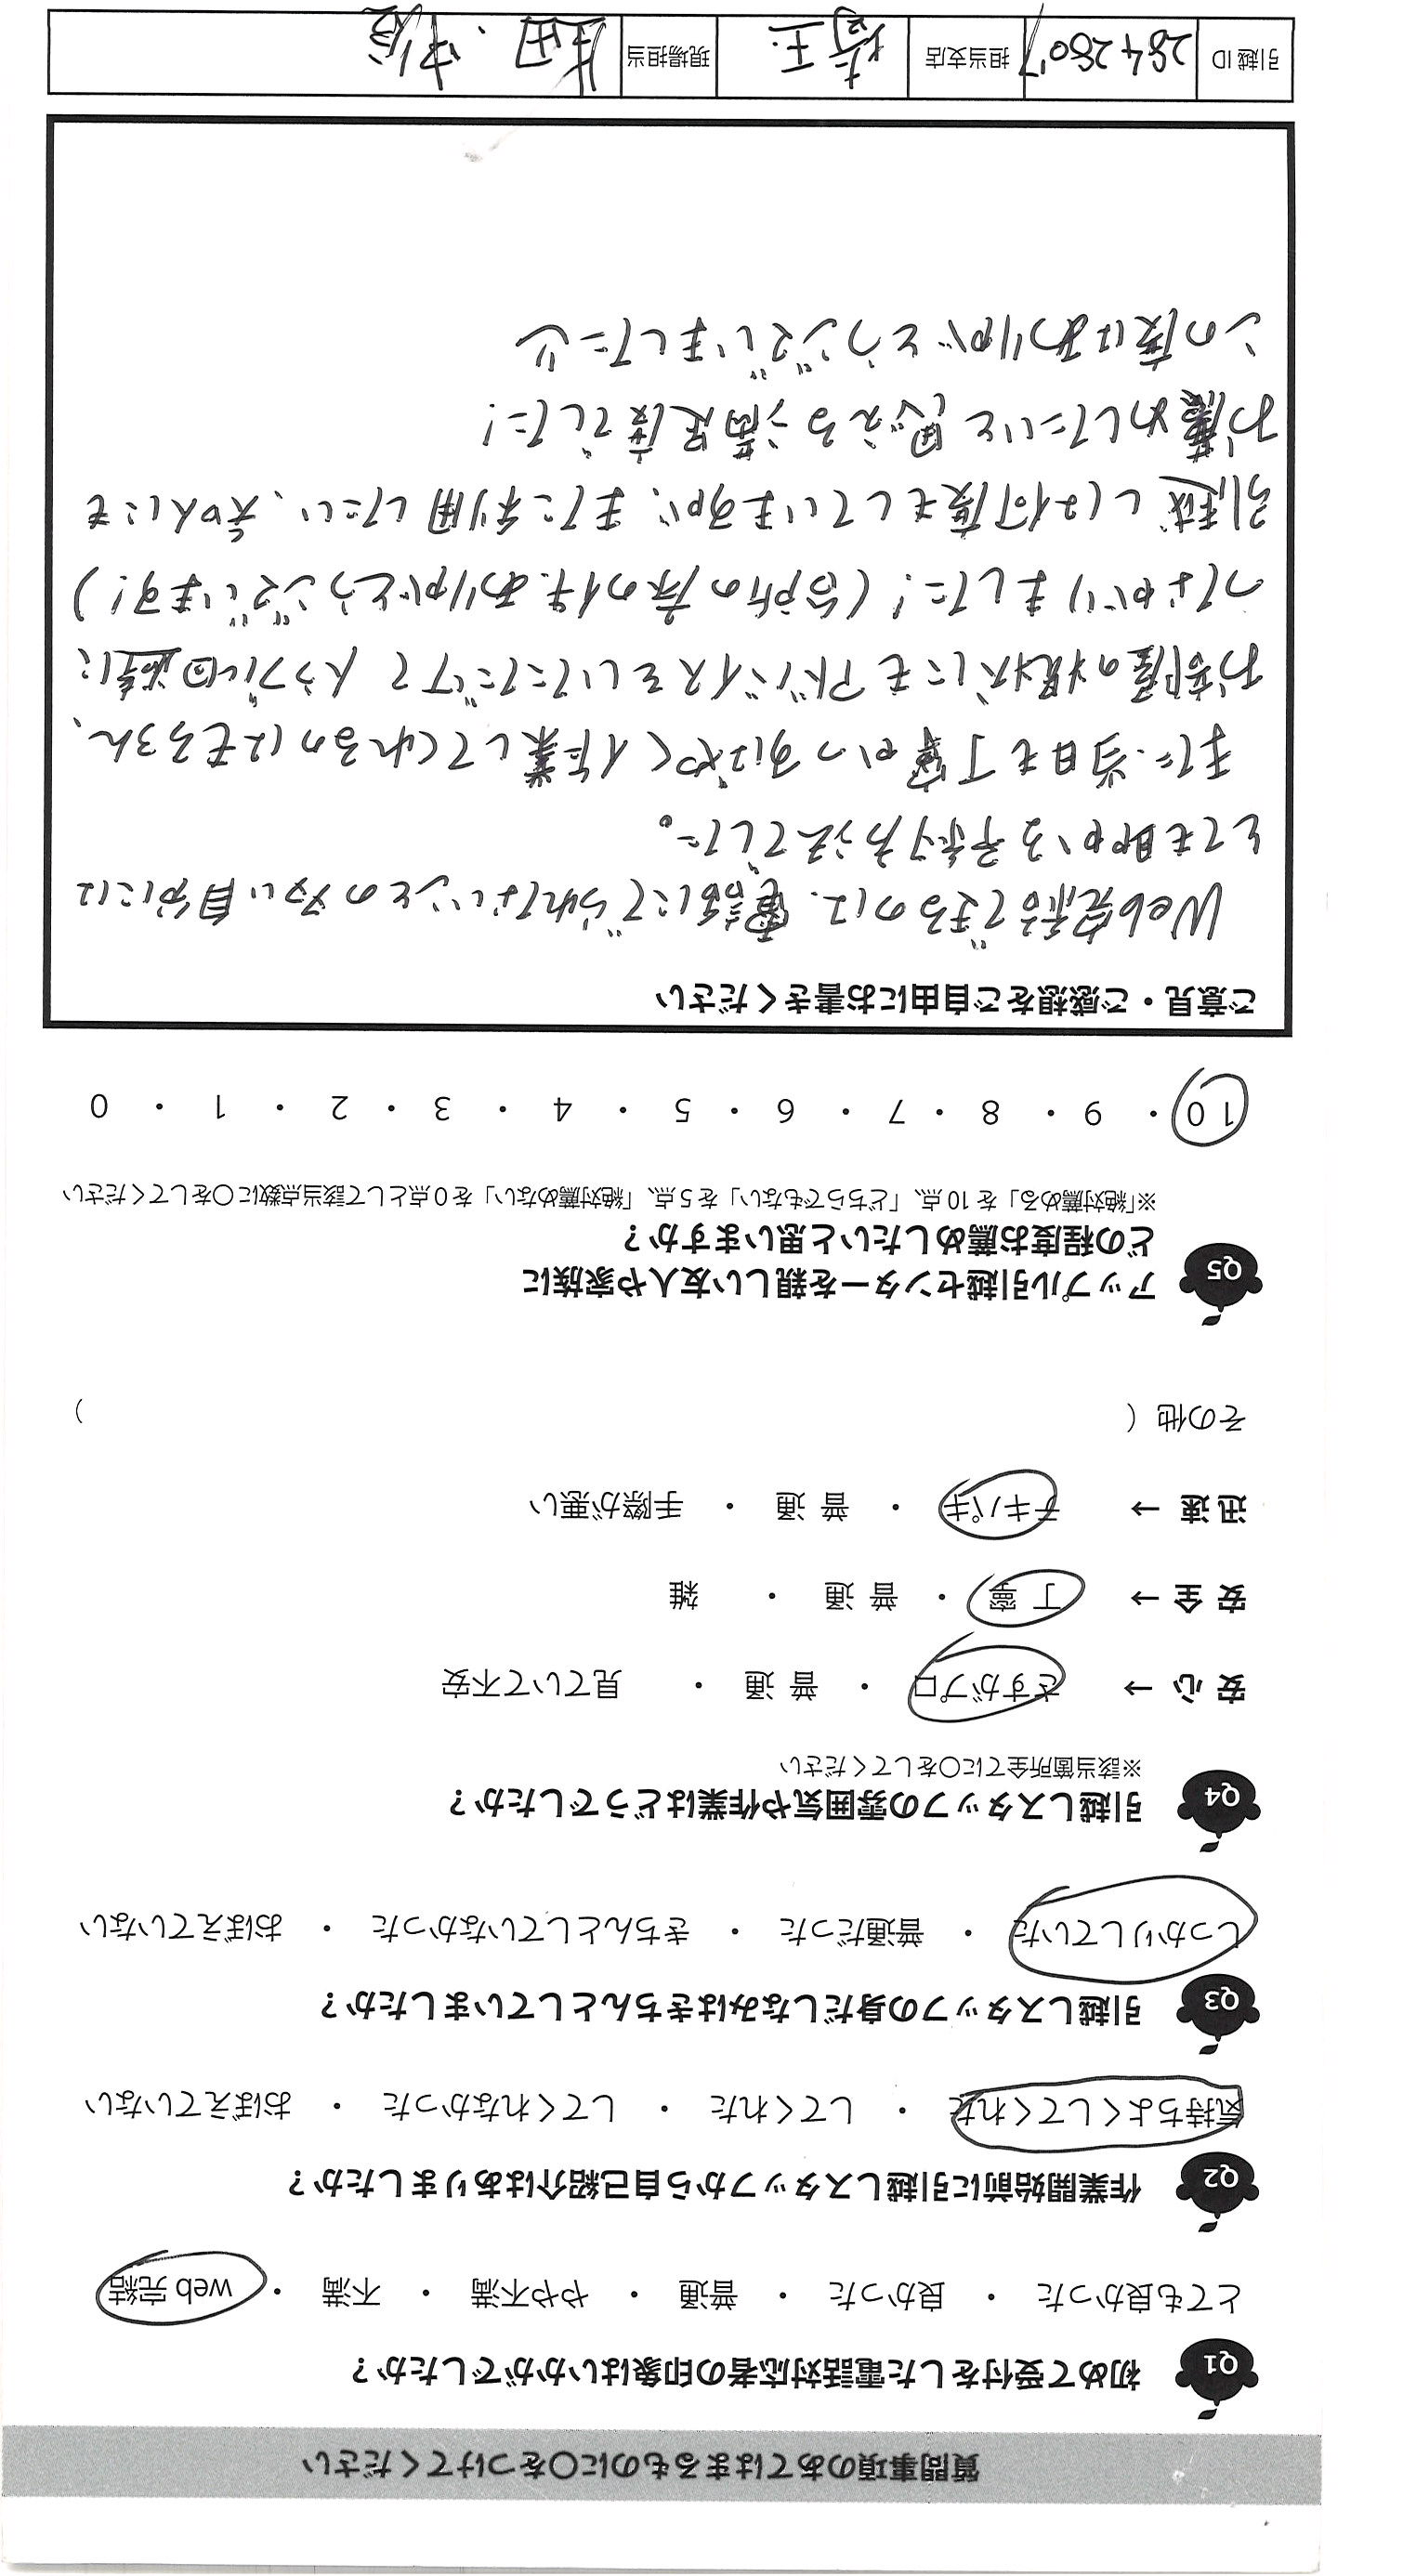 質問事項のあてはまるものに○をつけてください
Q1 初めて受付をした電話対応者の印象はいかがでしたか？
とても良かった ・ 良かった ・ 普通 ・ やや不満 ・ 不満 ・ web 完結
Q2 作業開始前に引越しスタッフから自己紹介はありましたか？
気持ちよくしてくれた ・ してくれた ・ してくれなかった ・ おぼえていない
Q3 引越しスタッフの身だしなみはきちんとしていましたか？
しっかりしていた ・ 普通だった ・ きちんとしていなかった ・ おぼえていない
Q4 引越しスタッフの雰囲気や作業はどうでしたか？
※該当箇所全てに○をしてください
安 心 → さすがプロ ・ 普 通 ・ 見ていて不安
安 全 → 丁 寧 ・ 普 通 ・ 雑
迅 速 → テキパキ ・ 普 通 ・ 手際が悪い
その他（ ）
Q5 アップル引越センターを親しい友人や家族に
どの程度お薦めしたいと思いますか？
※「絶対薦める」を 10 点、「どちらでもない」を 5 点、「絶対薦めない」を 0 点として該当点数に○をしてください
10 ・ 9 ・ 8 ・ 7 ・ 6 ・ 5 ・ 4 ・ 3 ・ 2 ・ 1 ・ 0
ご意見・ご感想をご自由にお書きください
Web完結できるのは、電話にでられないことの多い自分には
とても助かる予約方法でした。
また、当日も丁寧かつすばやく作業してくれるのはもちろん、
お部屋の現状にもアドバイスをいただいて トラブル回避に
つながりました！（台所の床の件、ありがとうございます！）
引越しは何度もしていますが、また利用したい、知人にも
お薦めしたいと思える満足度でした！
この度はありがとうございました
引越 ID 28428007 担当支店 埼玉 現場担当